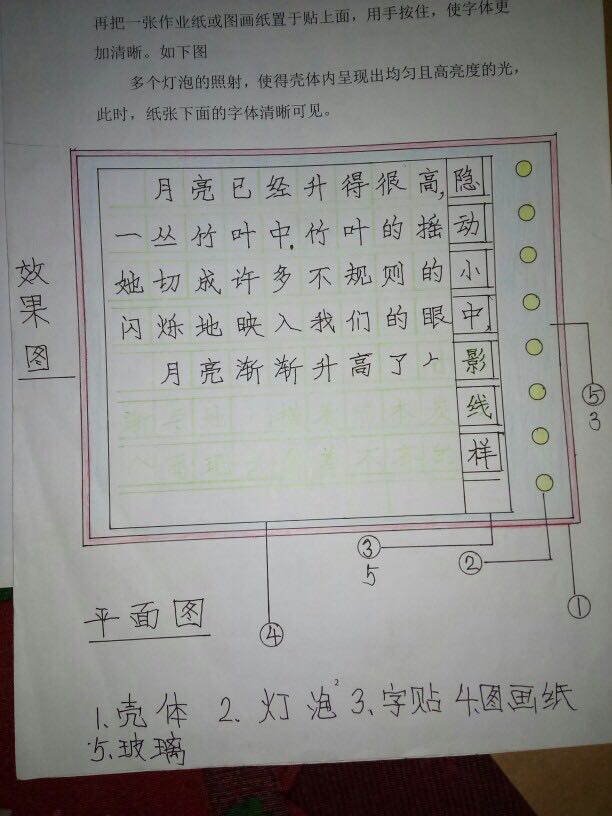 再把一张作业纸或图画纸置于贴上面，用手按住，使字体更
加清晰。如下图
多个灯泡的照射，使得壳体内呈现出均匀且高亮度的光，
此时，纸张下面的字体清晰可见。
月亮已经升得很高,隐
一丛竹叶中.竹叶的摇动
她切成许多不规则的小
闪烁地映入我们的眼中,
月亮渐渐升高了 影
线
样
效果图
⑤
3
③
5
②
①
④
平面图
1.壳体 2.灯泡 2 3、字贴 4.图画纸
5.玻璃